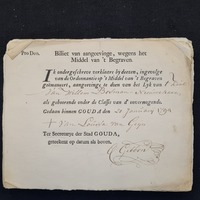 Pro Deo.
Billiet van aangeevinge, wegens het
Middel van 't Begraven.
Ik ondergeschreve verklaare by deezen, ingevolge
van de Ordonnantie op 't Middel van 't Begraven
geëmaneert, aangeevinge te doen van het Lyk van 't Kind
van Willem
als gehoorende onder de Classis van d'onvermogende.
Gedaan binnen GOUDA den 21 January 179
Ter Secretarye der Stad GOUDA,
geteekent op datum als boven.